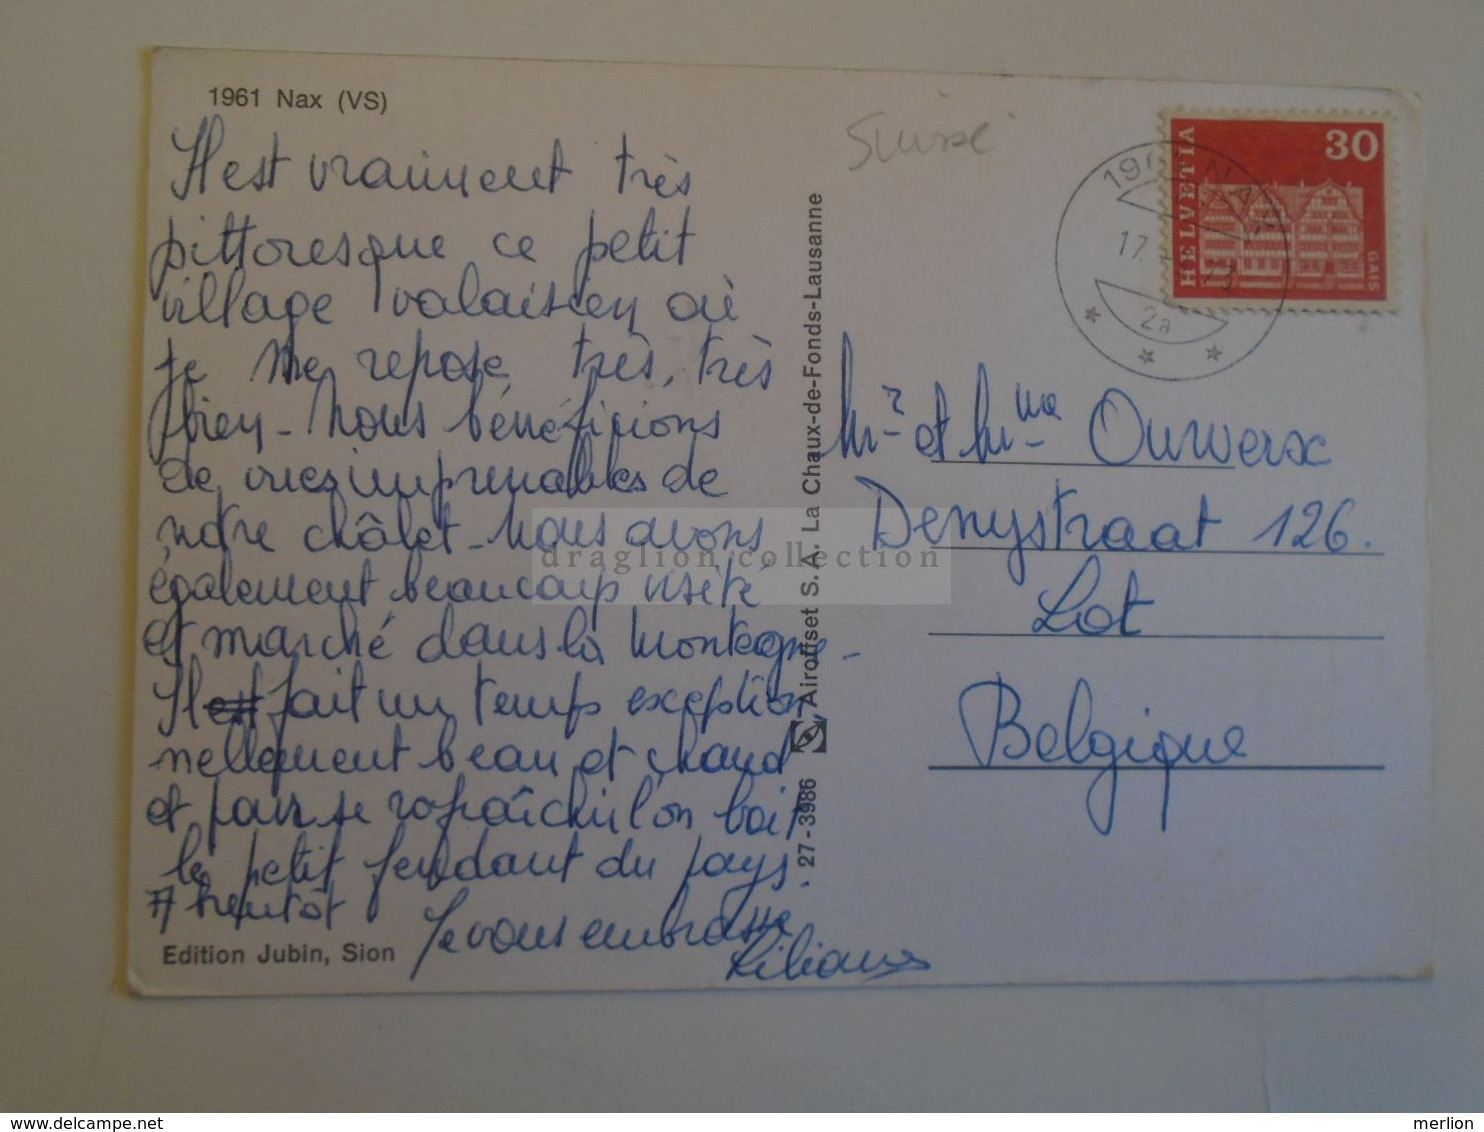 1961 Nax (VS)
Il est vraiment très
pittoresque ce petit
village valaisien où
je me repose très, très
bien - Nous bénéficions
de vues imprenables de
notre châlet - Nous avons
également beaucoup visité
et marché dans la montagne -
Il est fait un temps exception
nellement beau et chaud
et pour se rafraîchir l'on boit
le petit fendant du pays.
A bientôt
Je vous embrasse
Liliane
Edition Jubin, Sion
27-3986 Airoffset S. A. La Chaux-de-Fonds-Lausanne
Suisse
HELVETIA
30
GAIS
NAX
17.
2a
Mr et Mme Ouwerx
Denystraat 126.
Lot
Belgique
draglion collection
delcampe.net
merlion